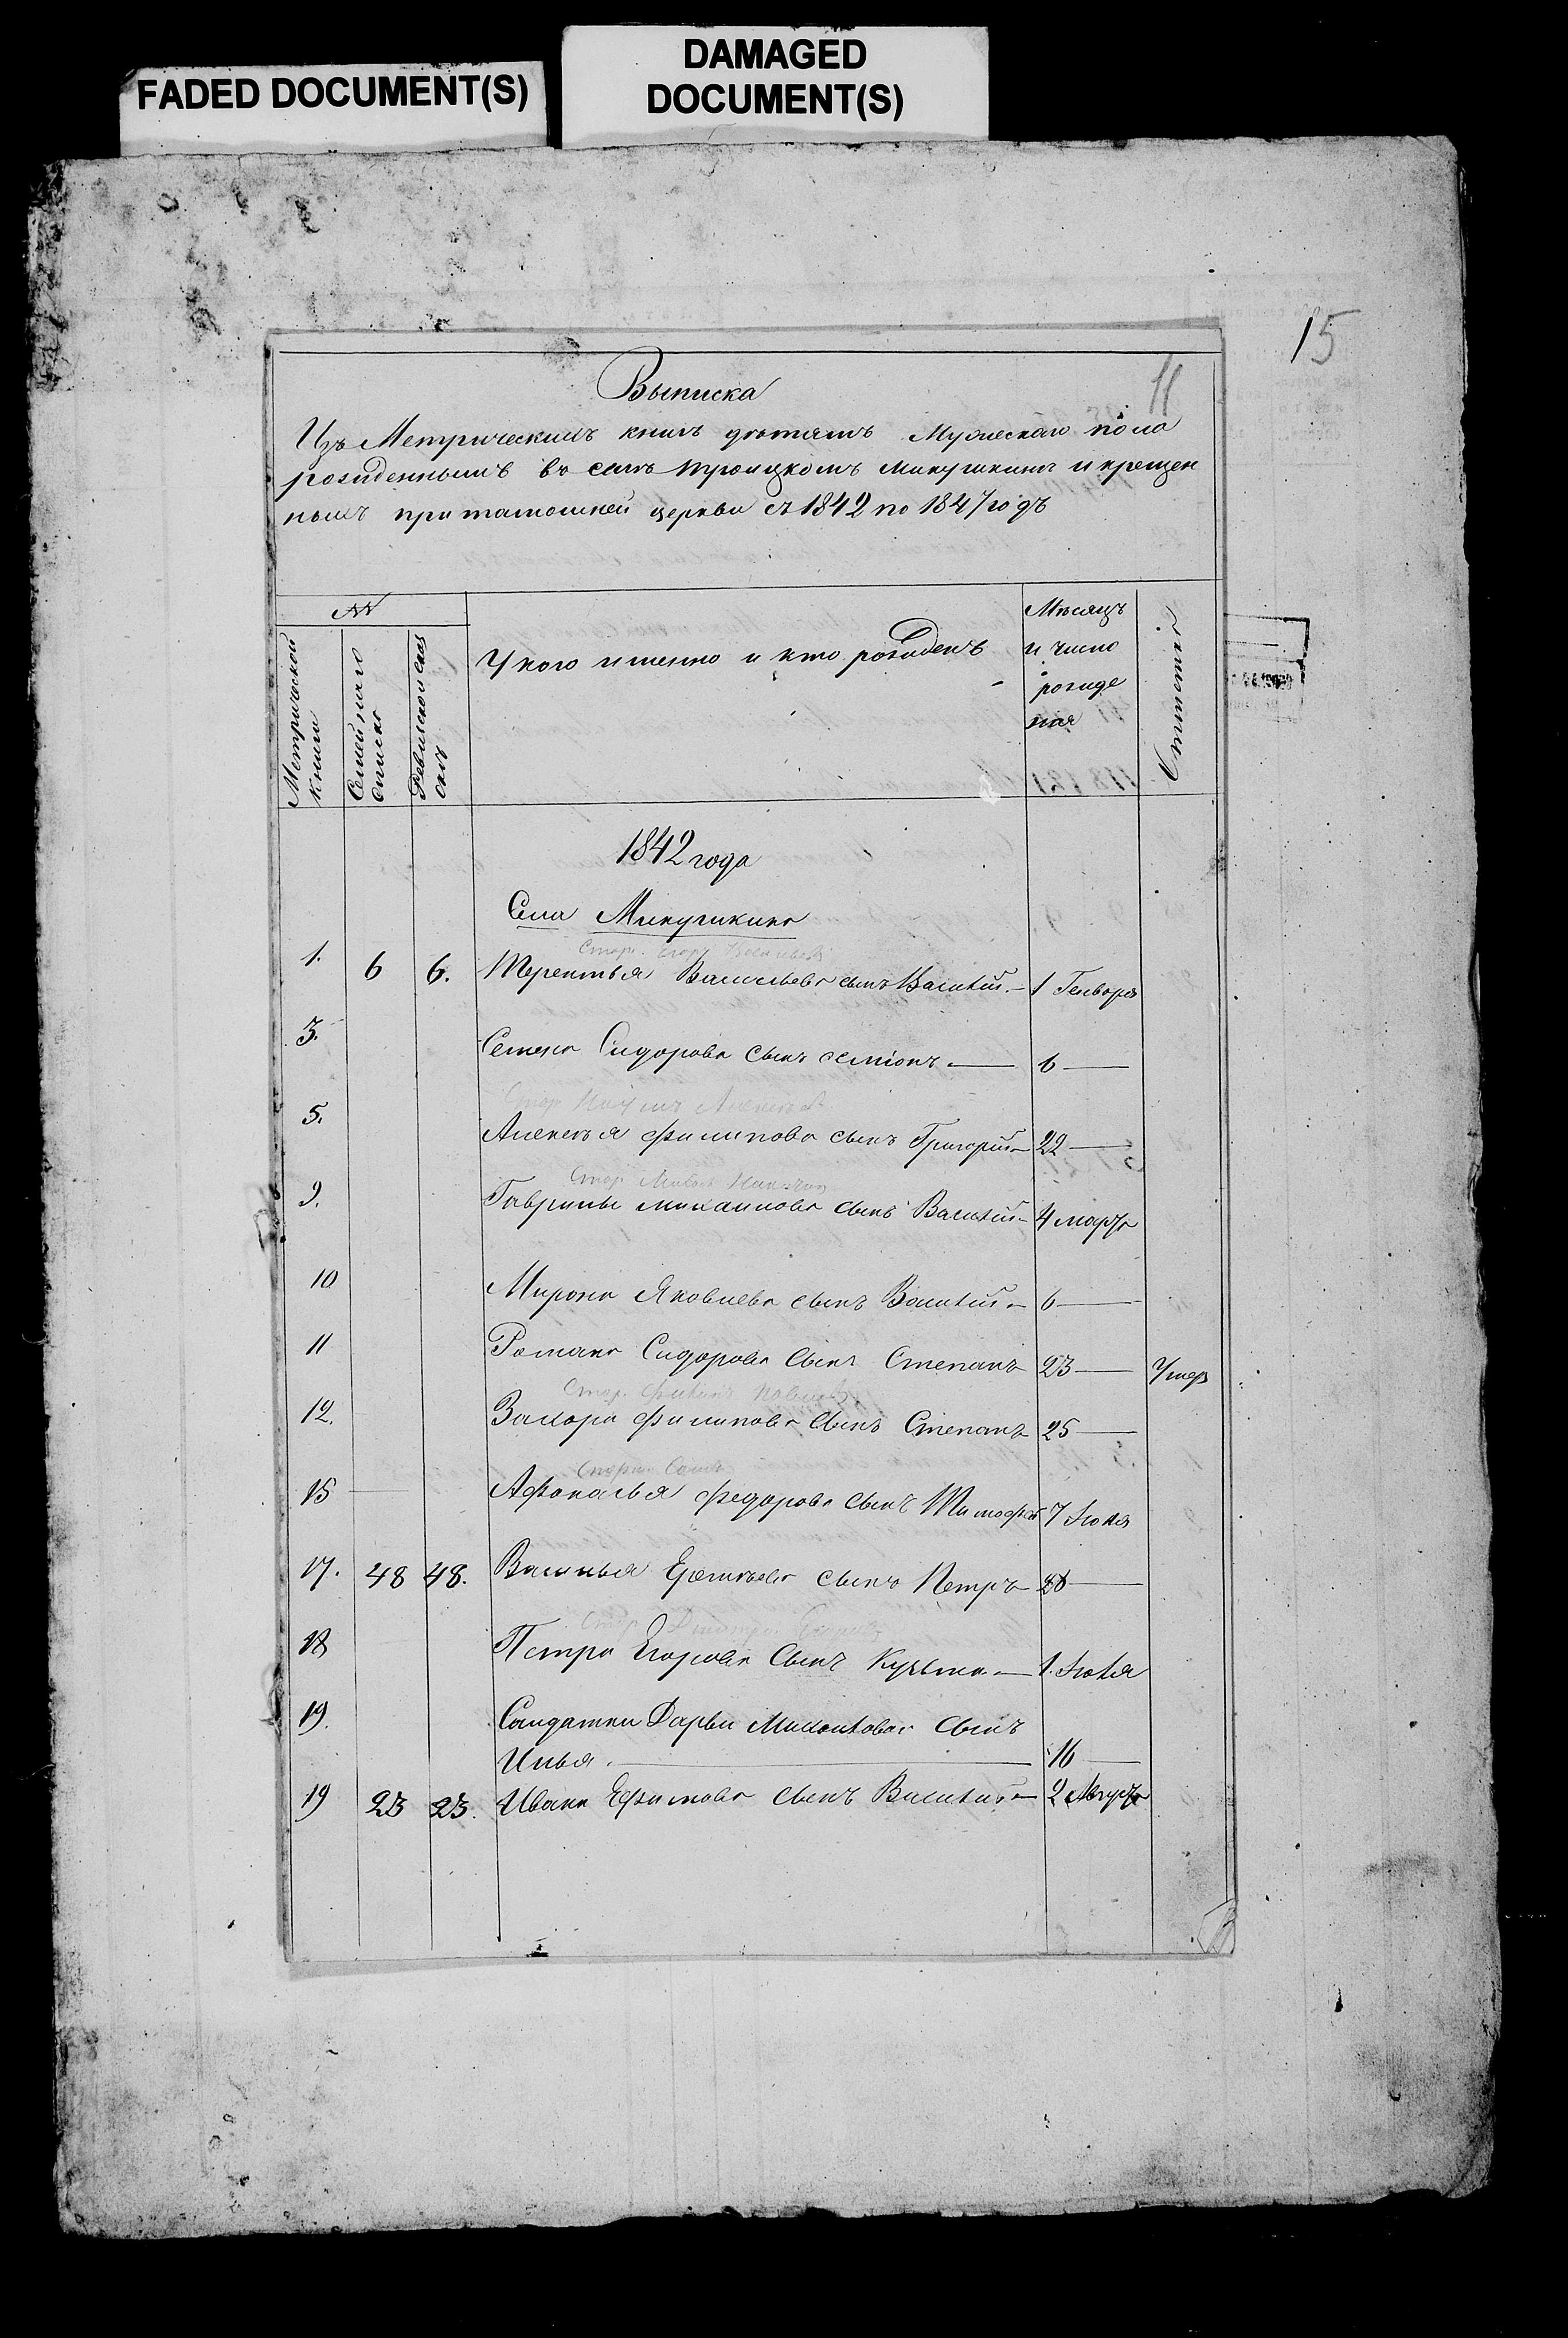 FADED DOCUMENT(S)
DAMAGED
DOCUMENT(S)
15
11
Выписка
Изъ Метрическихъ книгъ детямъ Мужескаго пола
рожденнымъ въ селе Троицкомъ Микушкине и крещен
нымъ при тамошней церкви съ 1842 по 1847 годъ
№
Метрической
книги
Семейнаго
списка
Ревизской
У кого именно и кто рожденъ
Месяцъ
и число
рожде
ния
Отметки
1842 года
Села Микушкина
Стар. Егоръ Васильевъ
1. 6 6. Терентья Васильева сынъ Василий 1 Генваря
3. Семена Сидорова сынъ Семионъ 6
Стар. Наумъ Алексеевъ
5. Алексея Филипова сынъ Григорий 22
Стар.
9. Гаврилы Михаилова сынъ Василий 4 марта
10 Мирона Яковлева сынъ Василий 6
11 Романа Сидорова сынъ Степанъ 23 Умеръ
Стар. Павловъ
12. Захара Филипова сынъ Степанъ 25
Самъ
15 Афанасья Федорова сынъ Тимофей 7 Июня
17. 48 48. Василья сынъ Петръ 28
Стар. Дмитри
18 Петра Егорова сынъ Кузьма 1. Июля
19. Солдатки Дарьи сынъ
Илья 16
19 23 23. Ивана Ефимова сынъ Василий 2 Августа